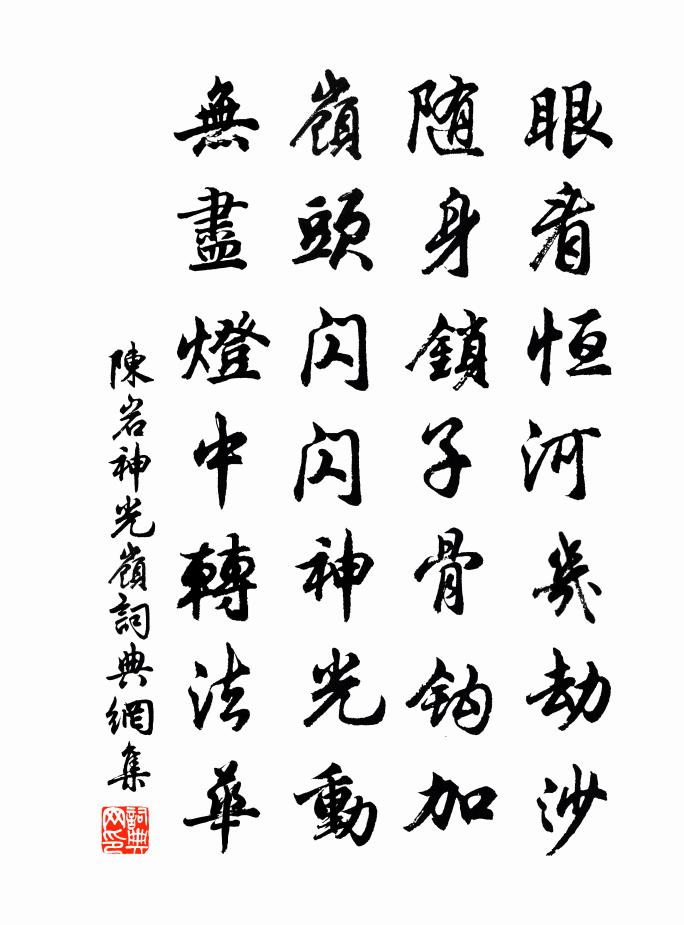 眼看恒河幾劫沙
随身鎖子骨鈎加
嶺頭閃閃神光動
無盡燈中轉法華
陳岩神光嶺詞典網集
詞典网印